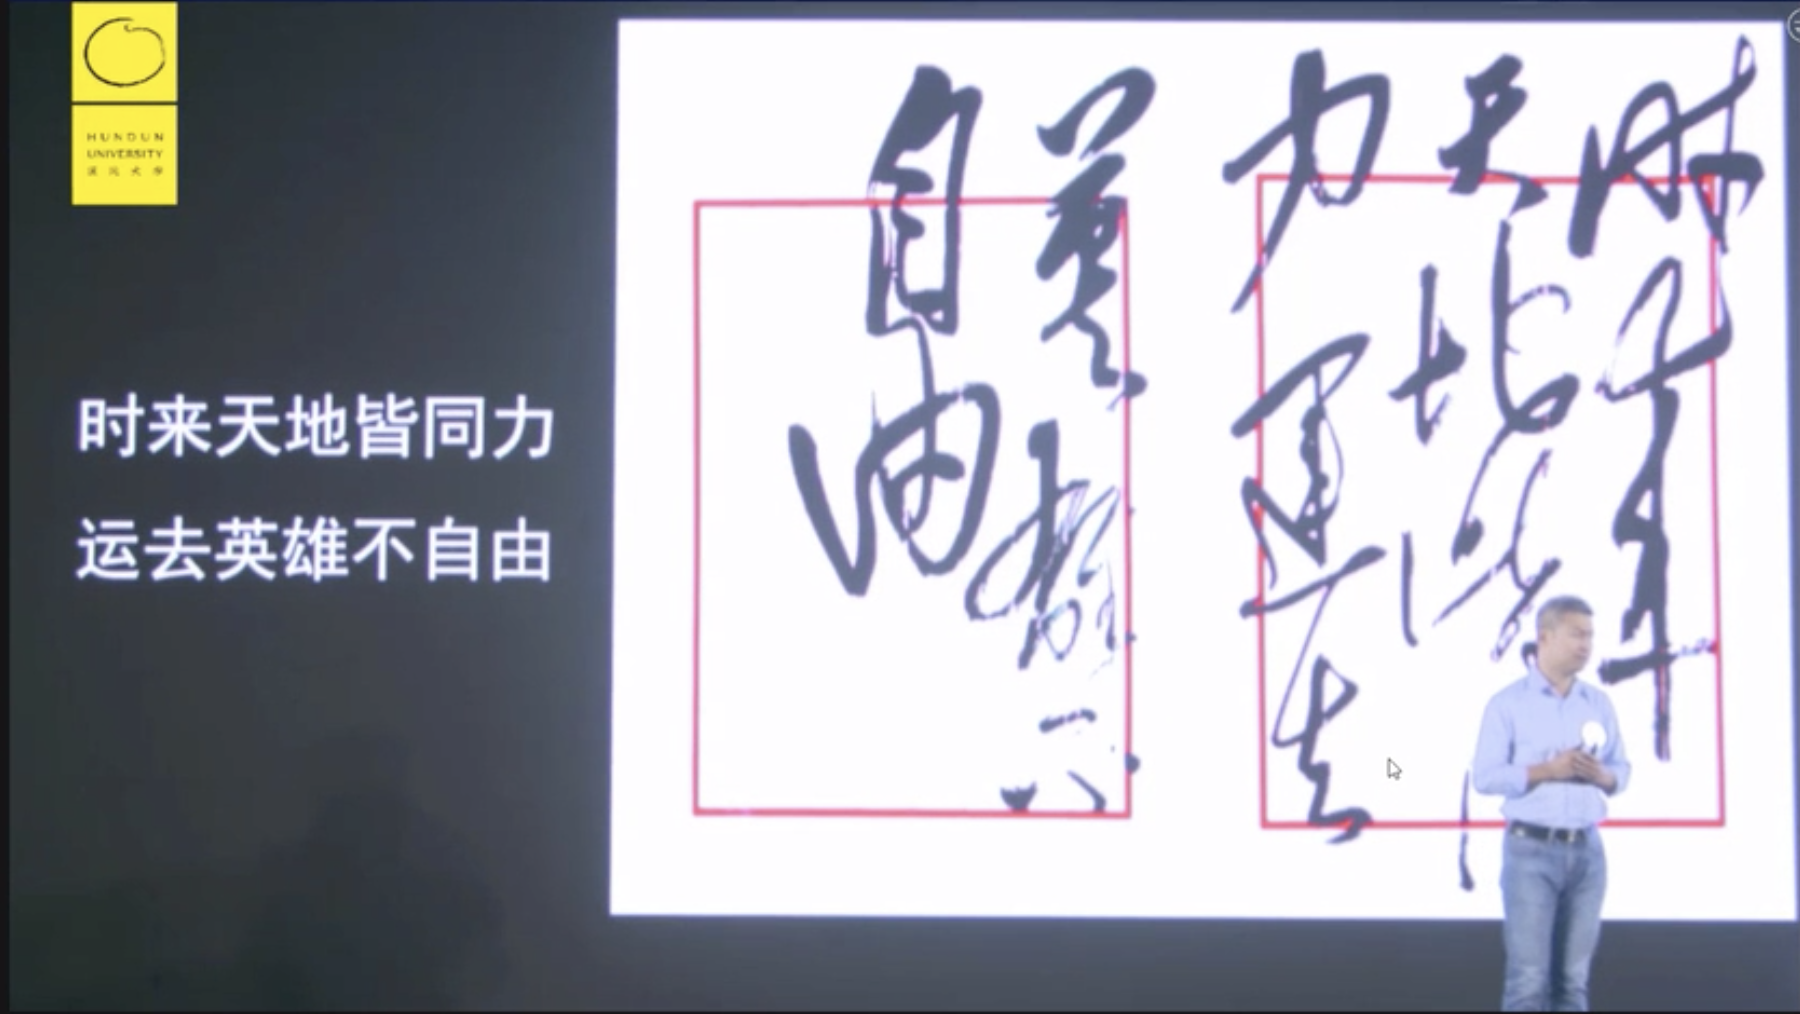 HUNDUN
UNIVERSITY
混沌大學
时来天地皆同力
运去英雄不自由
时来
天地皆
力運去
英雄不
自由